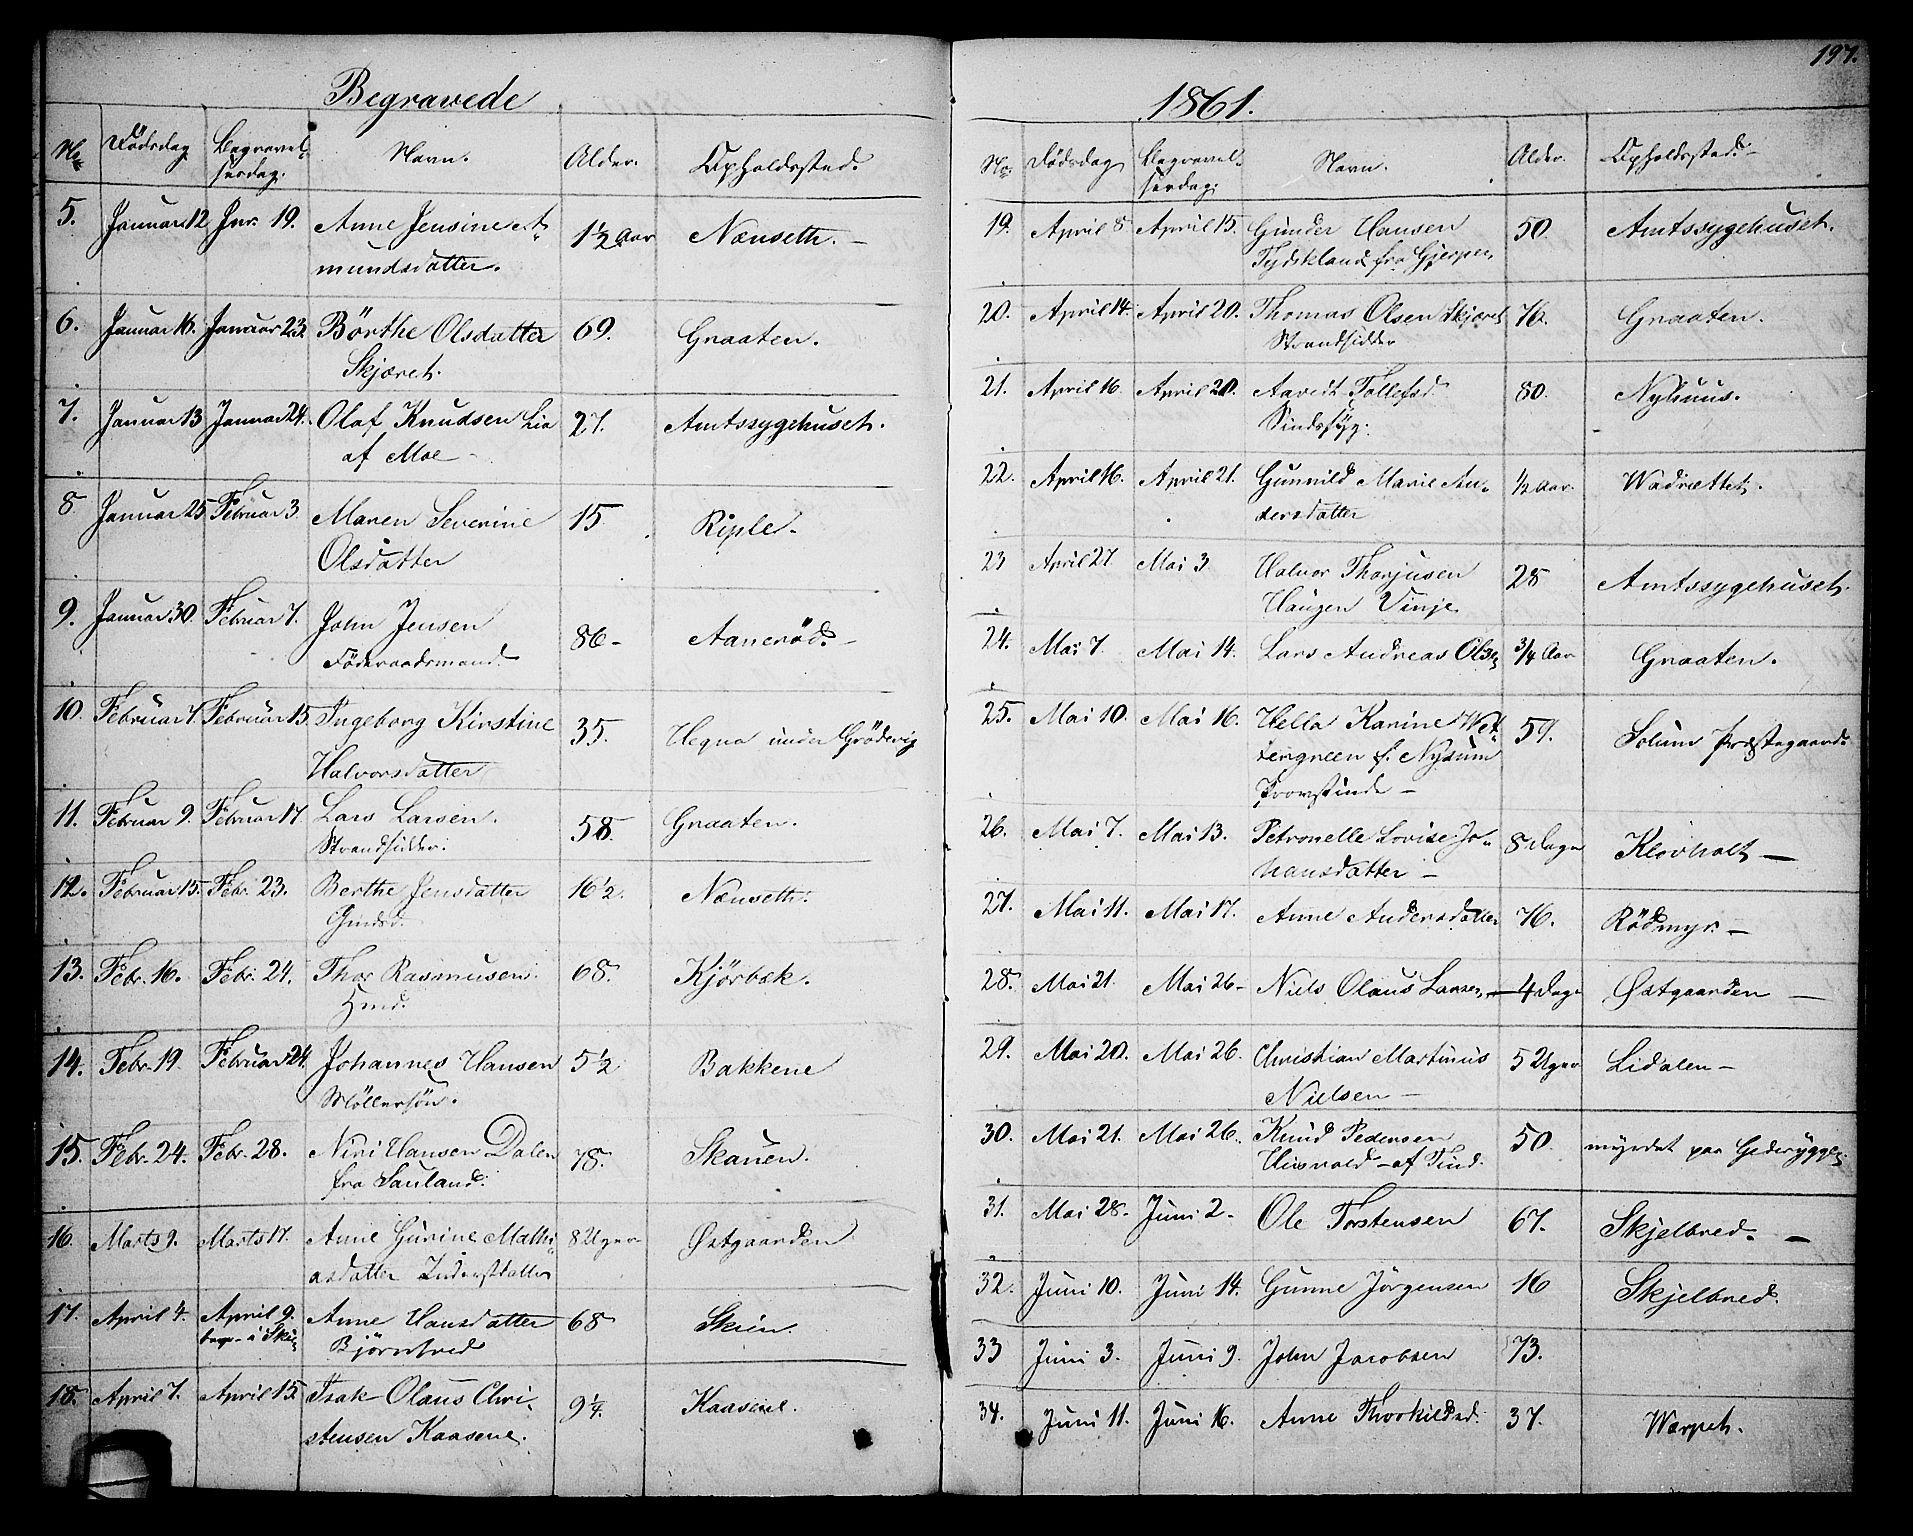 197.
Begravede
No Dödsdag Begravel-
serdag. Navn. Alder. Opholdssted.
5. Januar 12 Jnr. 19. Anne Jensine A-
mundsdatter. 1½ Aar Nænseth. -
6. Januar 16. Januar 23. Börthe Olsdatter
Skjæret. 69. Graaten.
7. Januar 13 Januar 24. Olaf Knudsen Lia
af Moe - 27. Amtssygehuset.
8 Januar 25 Februar 3 Maren Severine
Olsdatter 15. Riple.
9. Januar 30. Februar 7. John Jensen
Föderaadsmand. 86 - Aanerød -
10. Februar 7. Februar 15. Ingeborg Kirstine
Halvorsdatter 35. Hegna under Gröderig
11. Februar 9. Februar 17 Lars Larsen.
Strandsidder. 58. Graaten.
12. Februar 15. Febr. 23. Berthe Jensdatter
Gindsd. 16½. Nænseth.
13. Febr. 16. Febr. 24. Thor Rasmusen.
Hmd. 68. Kjörbæk.
14. Febr. 19 Februar 24. Johannes Hansen
Möllersön. 5½ Bakkene
15. Febr. 24. Febr. 28. Niri Hansen Dalen
fra Sauland. 78. Skauen.
16. Marts 9. Marts 17. Anne Gurine Mathi-
asdatter Inderstdatter 8 Uger Østgaarden
17. April 4. April 9.
begr. i Ski- Anne Hansdatter
Björntved 68 Skien.
18. April 7. April 15. Isak Olaus Chri-
stensen Kaasene. 9¼. Kaasene.
1861.
No Dödsdag Begravel-
serdag. Navn. Alder. Opholdssted. -
19. April 8 April 15. Gunder Hansen
Tydskland fra Gjerpen 50. Amtssygehuset.
20. April 14. April 20. Thomas Olsen Skjæret
Strandsidder 76. Graaten.
21. April 16. April 20. Aavedt Tollefsd.
Sindssyg. 80. Nyhuus.
22. April 16. April 21. Gunnild Marie An-
dersdatter ½ Aar. Wadrættet.
23 April 27 Mai 3 Halvor Thorjusen
Haugen Vinje 28 Amtssygehuset.
24. Mai 7. Mai 14. Lars Andreas Olsen ¾ Aar Graaten.
25. Mai 10. Mai 16. Hella Karine Wet-
tergreen f. Nysum
Provstinde - 59. Solum Præstegaard.
26. Mai 7. Mai 13. Petronelle Lovise Jo-
hansdatter - 8 Dage Klovholt -
27. Mai 11. Mai 17. Anne Andersdatter 76. Rödmyr. -
28. Mai 21. Mai 26 - Niels Olaus Larsen, - 4 Dage Østgaarden -
29. Mai 20. Mai 26. Christian Martinius
Nielsen - 5 Uger Lidalen -
30. Mai 21. Mai 26. Knud Pedersen
Husvold - af Tind. 50. myrdet paa Gederyggen
31. Mai 28. Juni 2 - Ole Torstensen 67. Skjelbred. -
32. Juni 10. Juni 14. Gunne Jörgensen 16 Skjelbred.
33 Juni 3. Juni 9. John Jacobsen 73.
34. Juni 11. Juni 16. Anne Thorkildsd. 37. Wærpet.